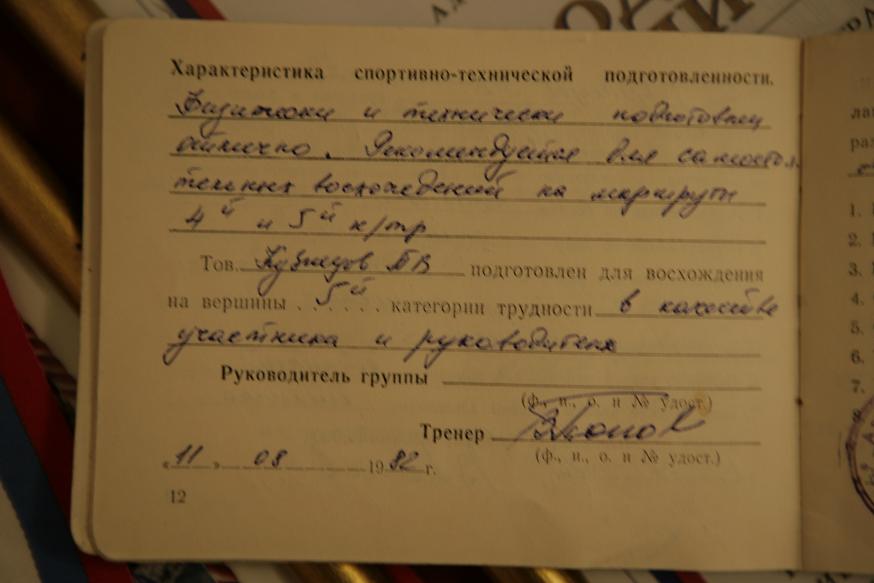 Характеристика спортивно-технической подготовленности.
Физически и технически подготовлен
отлично. Рекомендуется для самостоя
тельных восхождений на маршруты
4й и 5й к/тр
Тов. Кузнецов В подготовлен для восхождения
на вершины . 5й . . . . . категории трудности в качестве
участника и руководителя
Руководитель группы
(ф., и., о. и № удост.)
Тренер
(ф., и., о. и № удост.)
«11» 08 1982 г.
12
лаг
раз
1.
2.
3.
4.
5.
6.
7.
8.